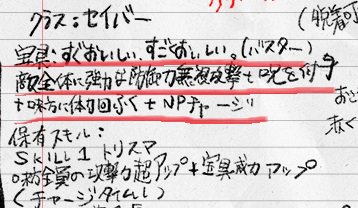 クラス:セイバー
(脱着可
宝具:すごおいしい、すごおいしい。(バスター)
敵全体に強力な防御力無視攻撃+呪を付与
+味方に体力回ふく+NPチャージ
お
赤く
保有スキル:
SKILL1 トリスマ
○味方全員の攻撃力超アップ+宝具威力アップ
(チャージタイム